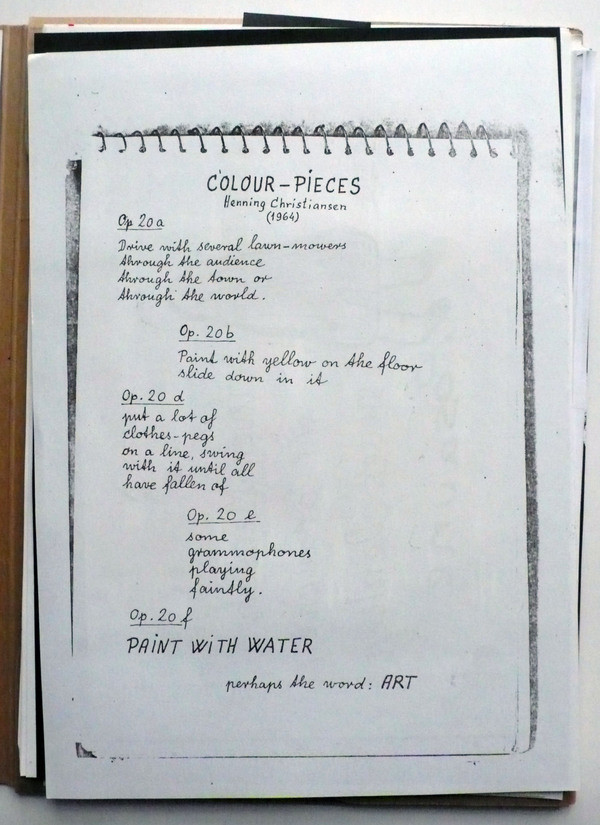 COLOUR-PIECES
Henning Christiansen
(1964)
Op 20a
Drive with several lawn-mowers
through the audience
through the town or
through the world.
Op. 20b
Paint with yellow on the floor
slide down in it
Op. 20 d
put a lot of
clothes-pegs
on a line, swing
with it until all
have fallen of
Op. 20 e
some
grammophones
playing
faintly.
Op. 20 f
PAINT WITH WATER
perhaps the word: ART